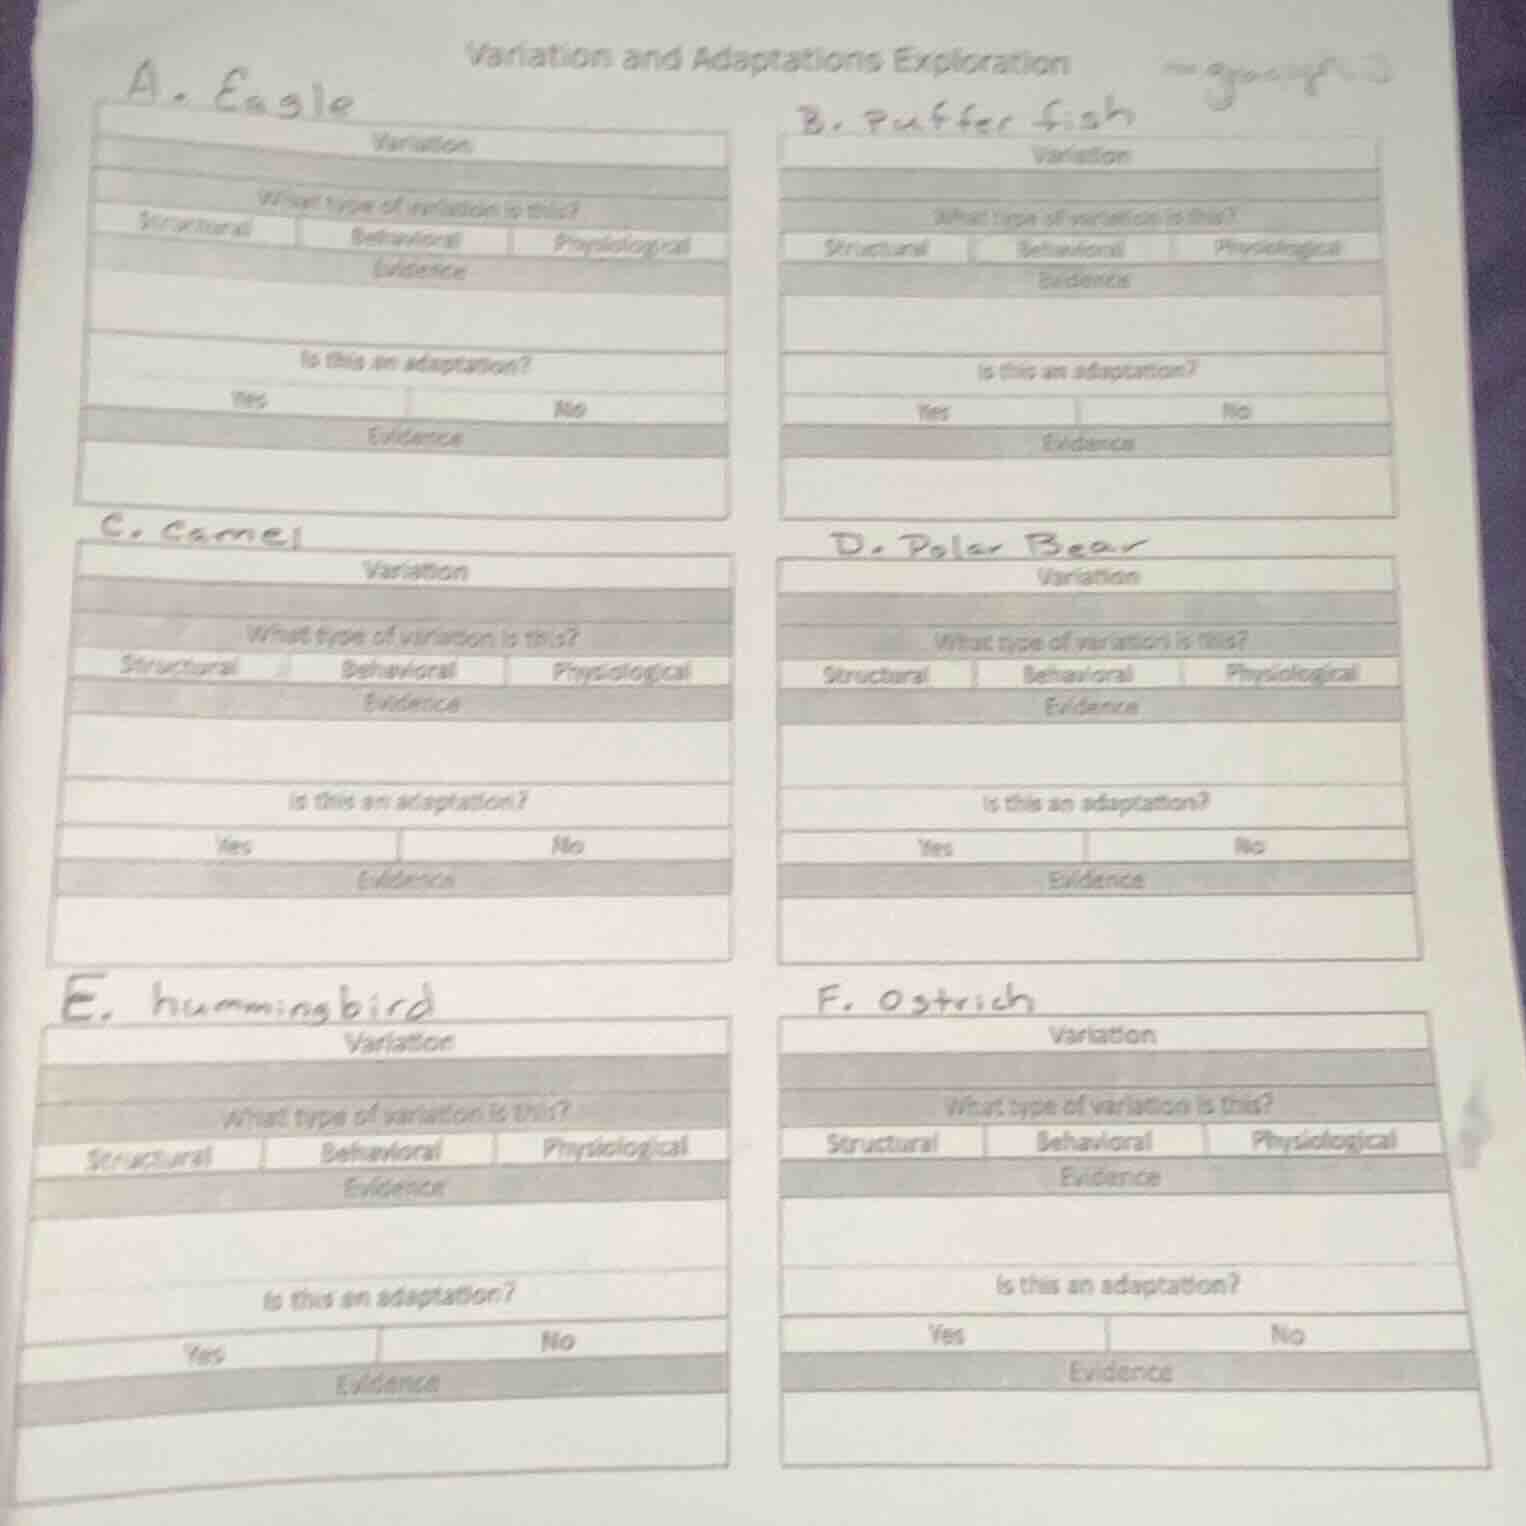 Variation and Adaptations Exploration
A. Eagle
Variation
What type of variation is this?
Structural Behavioral Physiological
Evidence
Is this an adaptation?
Yes No
Evidence
B. Puffer fish
Variation
What type of variation is this?
Structural Behavioral Physiological
Evidence
Is this an adaptation?
Yes No
Evidence
C. Camel
Variation
What type of variation is this?
Structural Behavioral Physiological
Evidence
Is this an adaptation?
Yes No
Evidence
D. Polar Bear
Variation
What type of variation is this?
Structural Behavioral Physiological
Evidence
Is this an adaptation?
Yes No
Evidence
E. hummingbird
Variation
What type of variation is this?
Structural Behavioral Physiological
Evidence
Is this an adaptation?
Yes No
Evidence
F. Ostrich
Variation
What type of variation is this?
Structural Behavioral Physiological
Evidence
Is this an adaptation?
Yes No
Evidence